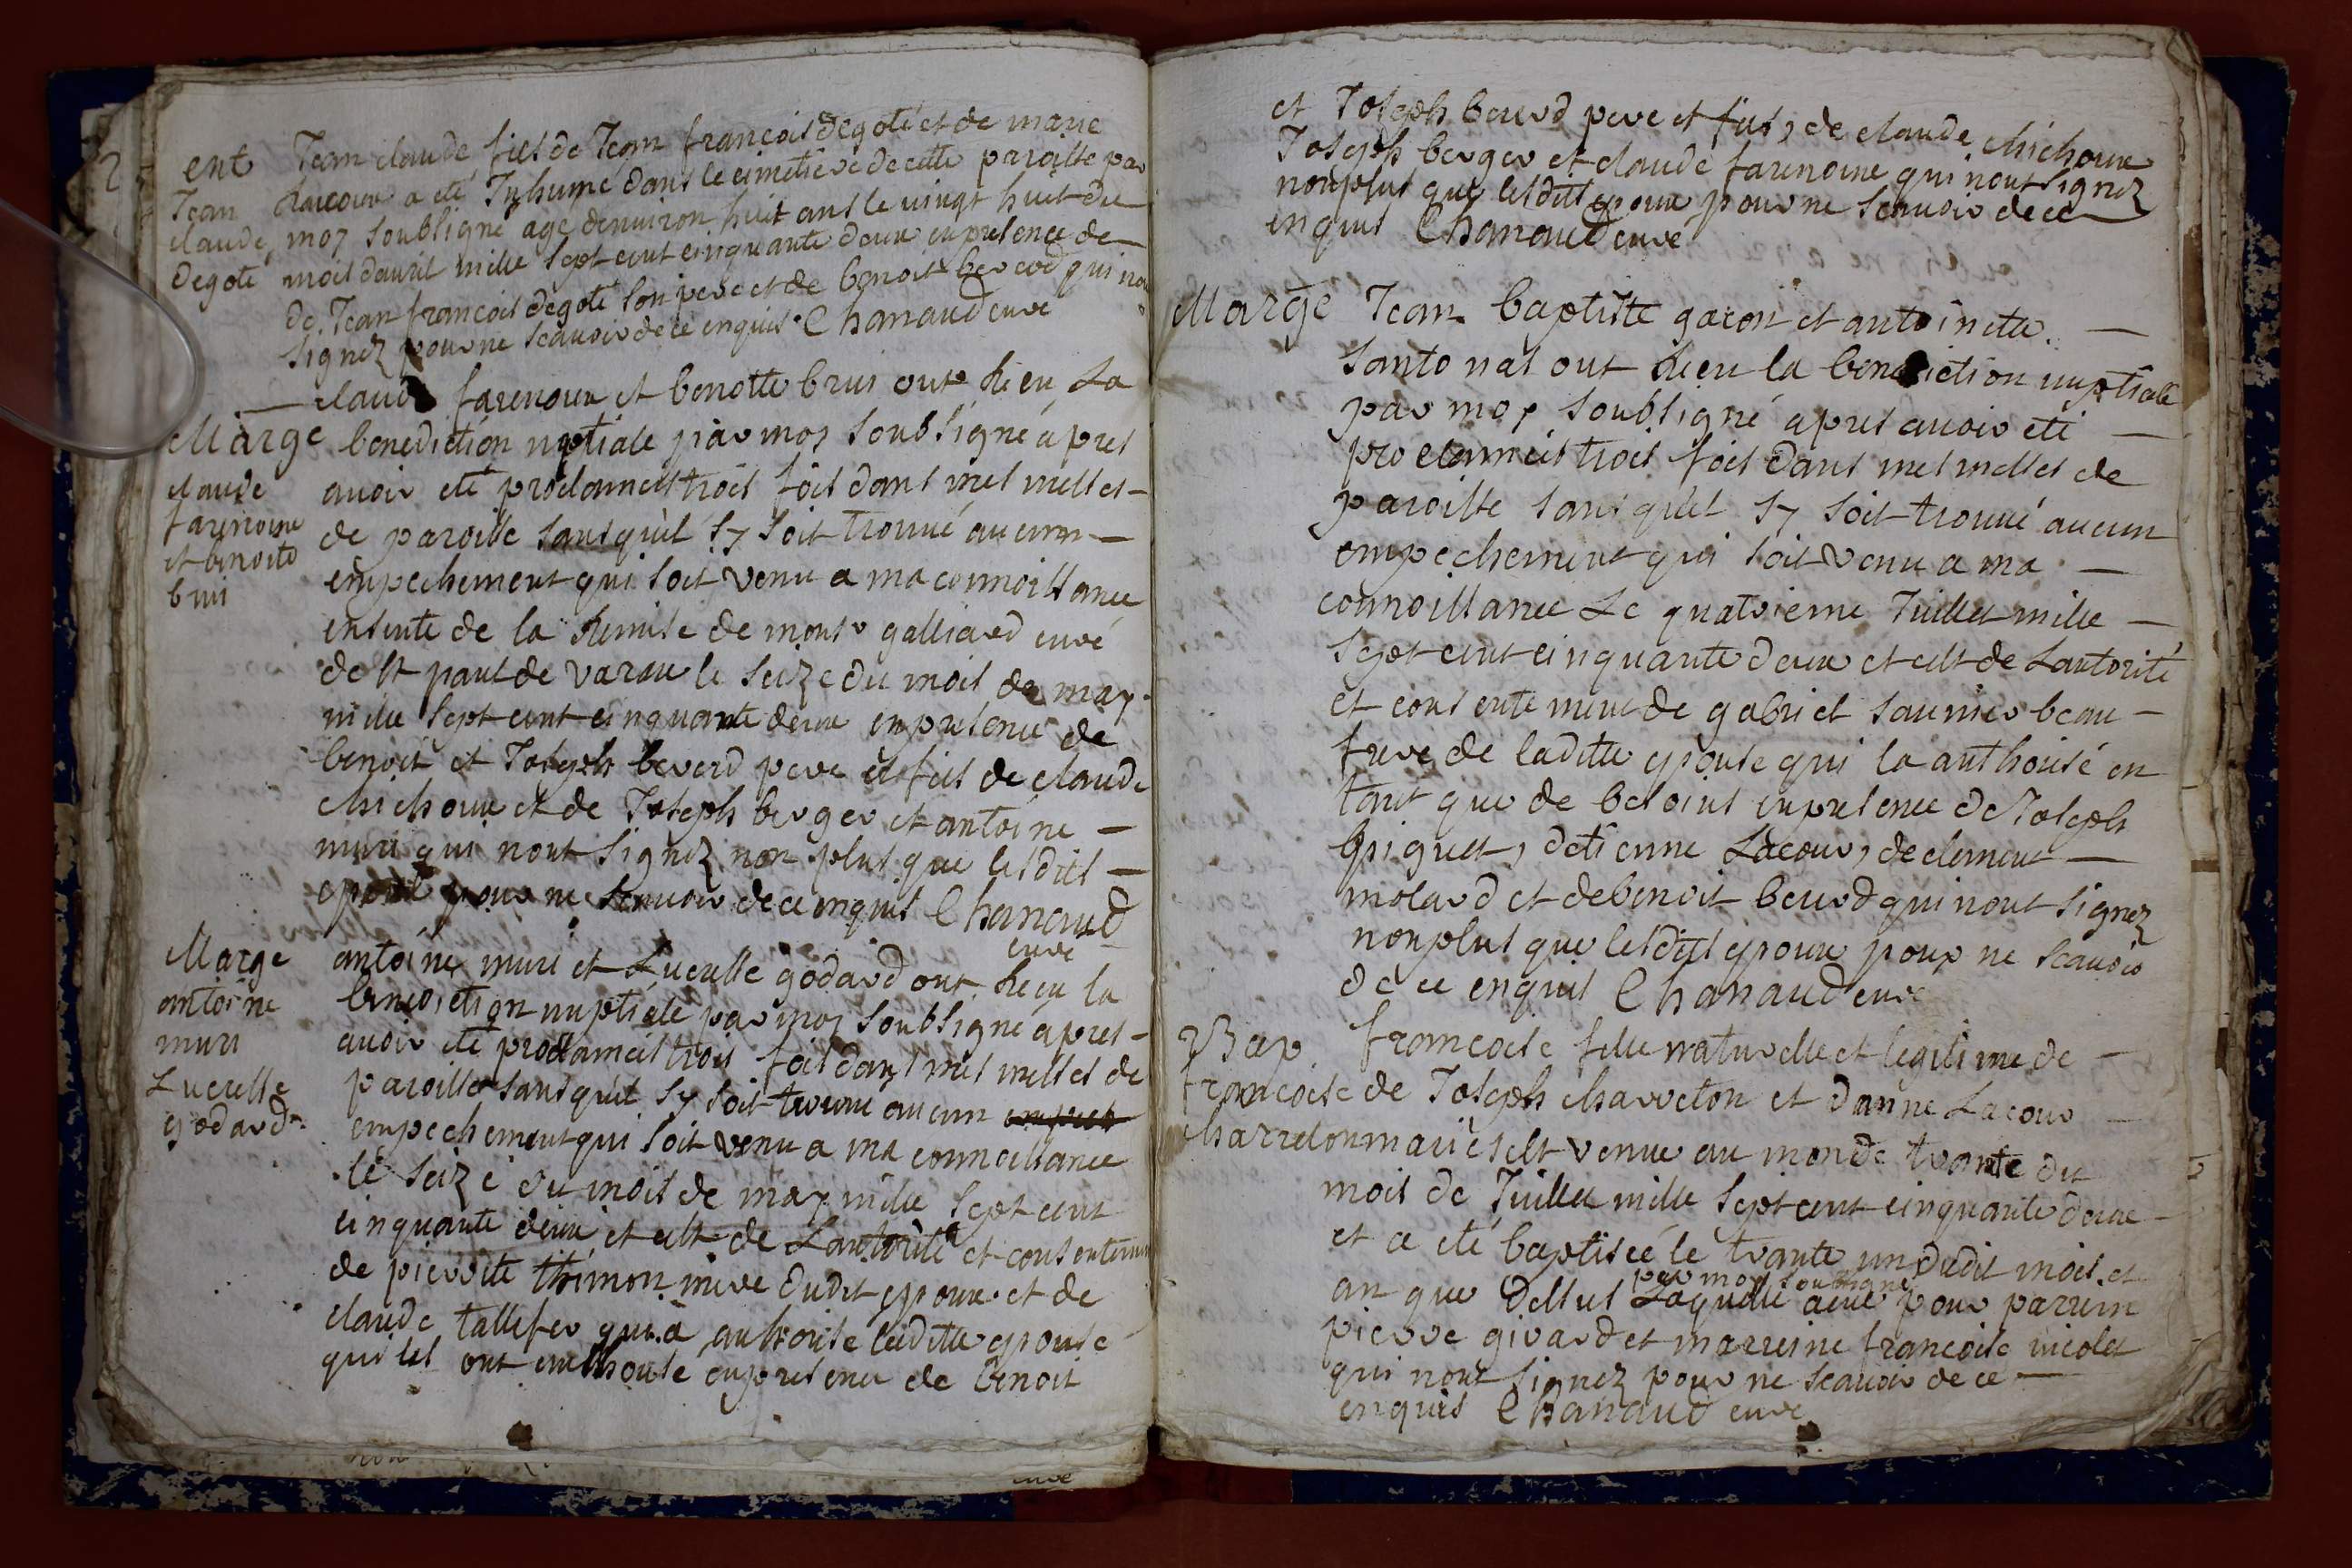 ent Jean claude fils de Jean francois degoté et de marie
Jean Lacour a eté Inhumé dans le cimetiere de cette paroisse par
claude moy soubsigné agé denviron huit ans le vingt huit du
degoté mois davril mille sept cent cinquante deux en presence de
de Jean francois degoté son pere et de benoit bererd qui nont
signez pour ne scauoir de ce enquis Chanaud curé
claude farenoux et benotte brui ont Recu La
Marge benediction nuptiale par moy soubsigné apres
claude auoir eté proclamés trois fois dans mes messes
farenoux de paroisse sans quil sy soit trouué aucun
et benoite empechement qui soit venu a ma connoissance
brui ensuite de la Remise de monsr galliard curé
de st paul de varax le seize du mois de may
mille sept cent cinquante deux en presence de
benoit et Joseph bererd pere et fils de claude
chichoux et de Joseph berger et antoine
muri qui nont signez non plus que lesdits
epoux pour ne scauoir de ce enquis Chanaud
curé
Marge antoine muri et Lucresse godard ont Recu la
antoine benediction nuptiale par moy soubsigné apres
muri auoir eté proclamés trois fois dans mes messes de
Lucresse paroisse sans quil sy soit trouué aucun empech
godard empechement qui soit venu a ma connoissance
le seize du mois de may mille sept cent
cinquante deux et cest de Lautorité et consentement
de pierrette thimon mere dudit epoux et de
claude tallefer qui a authorisé laditte epouse
qui les ont authorisé en presence de benoit
et Joseph bererd pere et fils, de claude chichoux
Joseph berger et claude farenoux qui nont signez
nonplus que lesdits epoux pour ne scauoir de ce
enquis Chanaud curé
Marge Jean baptiste gacon et antoinette
santonas ont Recu la benediction nuptialle
par moy soubsigné apres auoir eté
proclamés trois fois dans mes messes de
paroisse sans quil sy soit trouué aucun
empechement qui soit venu a ma
connoissance Le quatrieme Juillet mille
sept cent cinquante deux et cest de Lautorité
et consentement de gabriel saunier beau
frere de laditte epouse qui la authorisé en
tant que de besoins en presence de Joseph
griguet, detienne Lacour, de clement
molard et de benoit bererd qui nont signez
nonplus que lesdits epoux pour ne scauoir
de ce enquis Chanaud curé
Bap francoise fille naturelle et legitime de
francoise de Joseph charreton et danne Lacour
charreton mariés est venue au monde trante du
mois de Juillet mille sept cent cinquante deux
et a eté baptisée le trante un dudit mois et
par moy soubsigné
an que dessus Laquelle a eue pour parrein
pierre girard et marreine francoise nicolet
qui nont signez pour ne scauoir de ce
enquis Chanaud curé
curé